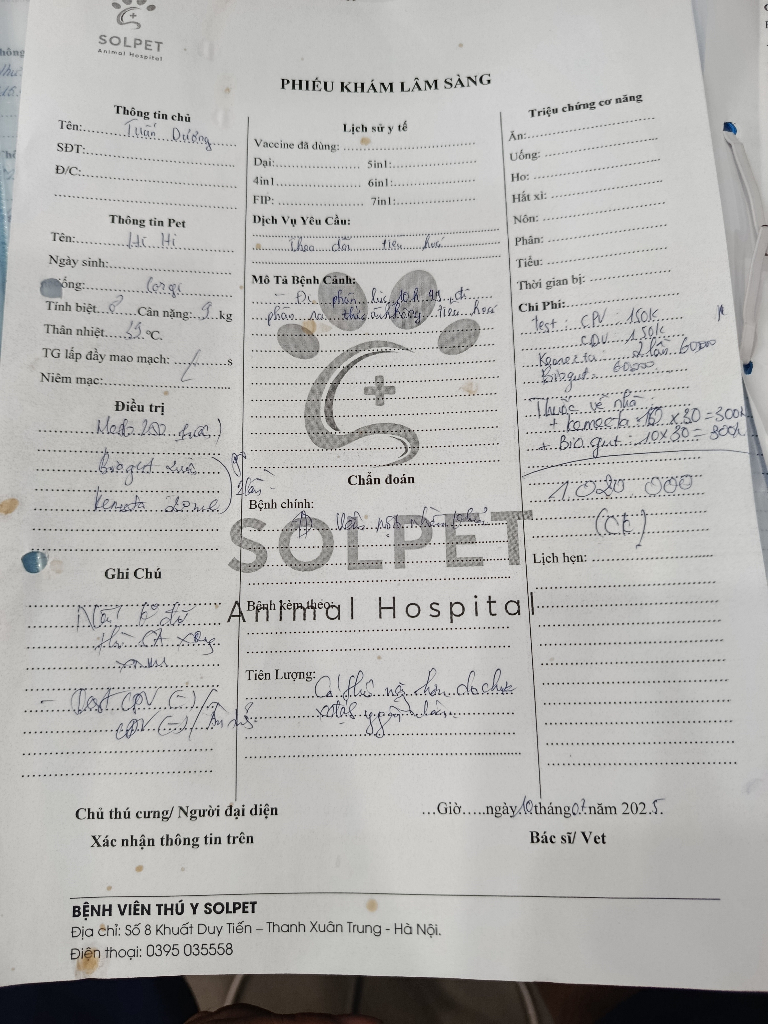 SOLPET
Animal Hospital
PHIẾU KHÁM LÂM SÀNG
Thông tin chủ
Tên: Tuấn Dương
SĐT:
Đ/C:
Thông tin Pet
Tên: Hi Hi
Ngày sinh:
Giống: Corgi
Tính biệt ♂ Cân nặng: 9 kg
Thân nhiệt 39 °C.
TG lấp đầy mao mạch: s
Niêm mạc:
Điều trị
Biogut
Kemecta
2 lần
Ghi Chú
Test CPV (-)
CDV (-)
Lịch sử y tế
Vaccine đã dùng:
Dại: 5in1:
4in1 6in1:
FIP: 7in1:
Dịch Vụ Yêu Cầu:
Theo dõi tiêu hoá
Mô Tả Bệnh Cảnh:
- Đi phân lúc
phân thức ăn không tiêu hoá
Chẩn đoán
Bệnh chính:
SOLPET
Animal Hospital
Bệnh kèm theo:
Tiên Lượng:
Có thể nặng hơn do chưa
Triệu chứng cơ năng
Ăn:
Uống:
Ho:
Hắt xì:
Nôn:
Phân:
Tiểu:
Thời gian bị:
Chi Phí:
Test: CPV: 150k
CDV: 150k
Kemecta: 2 lần 60000
Biogut: 60000
Thuốc về nhà:
+ Kemecta 10 x 30 = 300k
+ Biogut: 10 x 30 = 300k
1.020.000
(CK)
Lịch hẹn:
Chủ thú cưng/ Người đại diện
Xác nhận thông tin trên
...Giờ.....ngày 10 tháng 07 năm 2025.
Bác sĩ/ Vet
BỆNH VIÊN THÚ Y SOLPET
Địa chỉ: Số 8 Khuất Duy Tiến – Thanh Xuân Trung - Hà Nội.
Điện thoại: 0395 035558